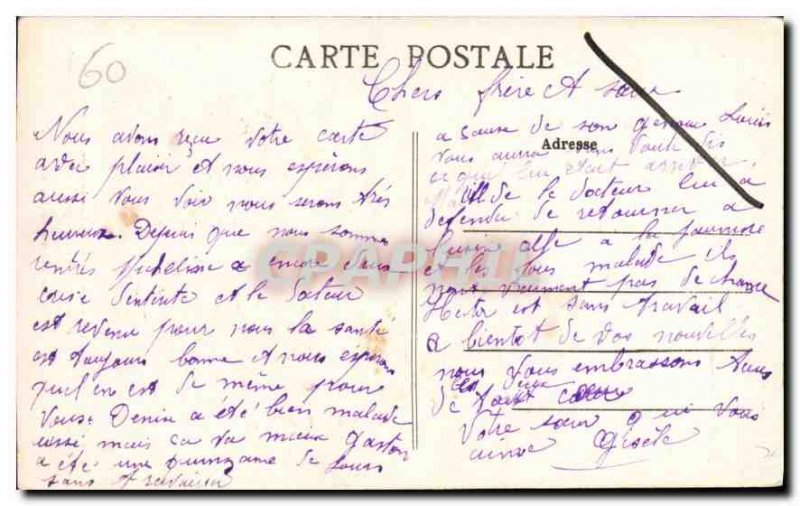 60
CARTE POSTALE
Chers frère et sœur
Nous avons reçu votre carte
avec plaisir et nous espérons
aussi vous voir nous serons très
heureux. Depuis que nous somme
rentrés a encore eus
crise et le docteur
est revenu pour nous la santé
est toujours bonne et nous espérons
quil en est de même pour
vous. Denise a été bien malade
aussi mais ca va mieux gaston
a été une de jours
sans travailler
a cause de son genoux Louis
Adresse
vous aura sans doute dis
ce qui lui était arriver
le docteur lui a
defendu de retourner a
a la
et les tous malade ils
nont vraiment pas de chance
est sans travail
a bientot de vos nouvelles
nous vous embrassons tous
les deux
de tout cœur
Votre sœur qui vous
aime Gisèle
CPAPHIL